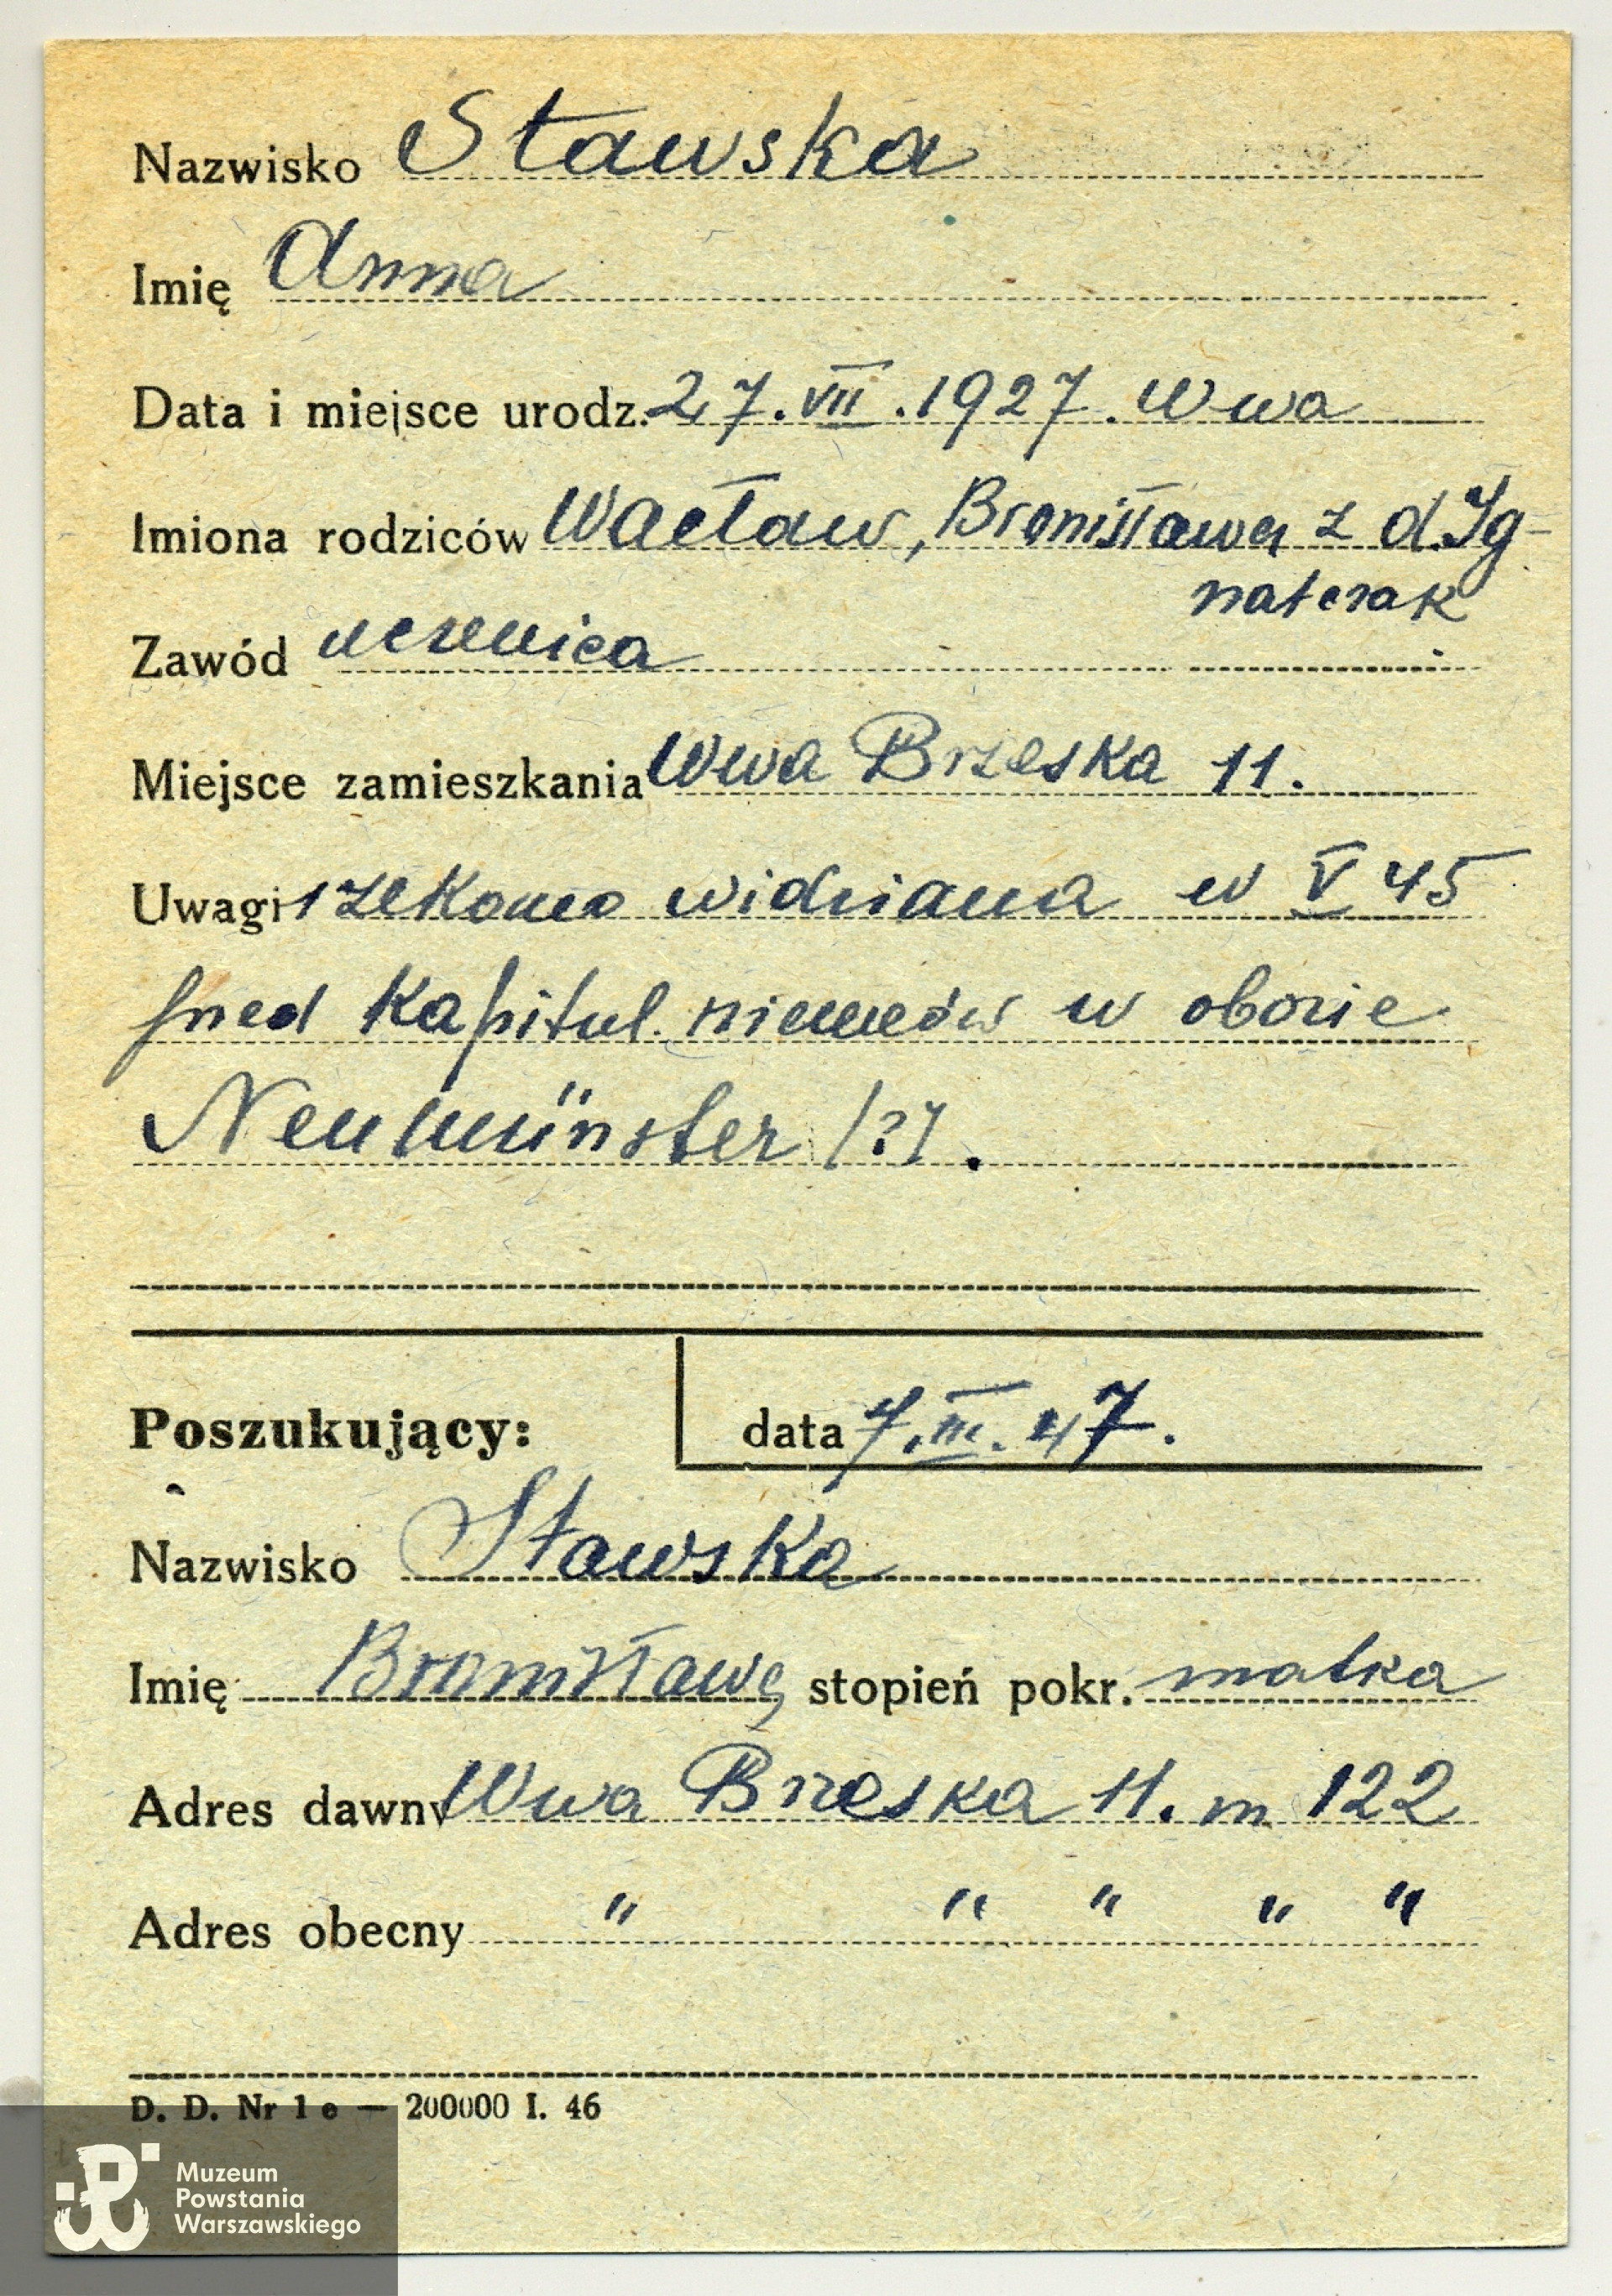 Nazwisko Stawska
Imię Anna
Data i miejsce urodz. 27.VII.1927. Wwa
Imiona rodziców Wacław, Bronisława z d. Ig-
natczak
Zawód uczenica
Miejsce zamieszkania Wwa Brzeska 11.
Uwagi rzekomo widziana w V 45
przed kapitul. niemców w obozie
Neumünster /?/.
Poszukujący: data 7.III.47.
Nazwisko Stawska
Imię Bronisława stopień pokr. matka
Adres dawny Wwa Brzeska 11. m 122
Adres obecny " " " " "
D. D. Nr 1 e — 200000 I. 46
Muzeum
Powstania
Warszawskiego